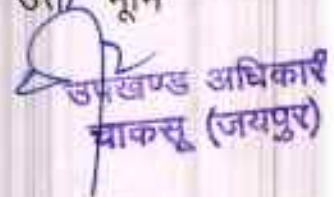 भूमि
उपखण्ड अधिकारी
चाकसू (जयपुर)